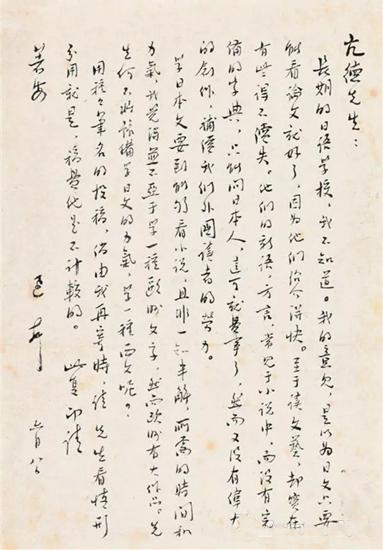 亢德先生：
長期的日語學校，我不知道。我的意見，是以為日文只要
能看論文就好了，因為他們紹介得快。至于讀文藝，却實在
有些得不償失。他們的新語，方言，常見于小說中，而沒有完
備的字典，只能問日本人，這可就費事了，然而又沒有偉大
的創作，補償我們外國讀者的勞力。
學日本文要到能够看小說，且非一知半解，所需的時間和
力氣，我覺得並不亞于學一種歐洲文字，然而歐洲有大作品。先
生何不將豫備學日文的力氣，學一種西文呢？
用種々筆名的投稿，倘由我再寄時，請 先生看情形
分用就是，稿費他是不計較的。 此复即請
著安
迅 上 六月八